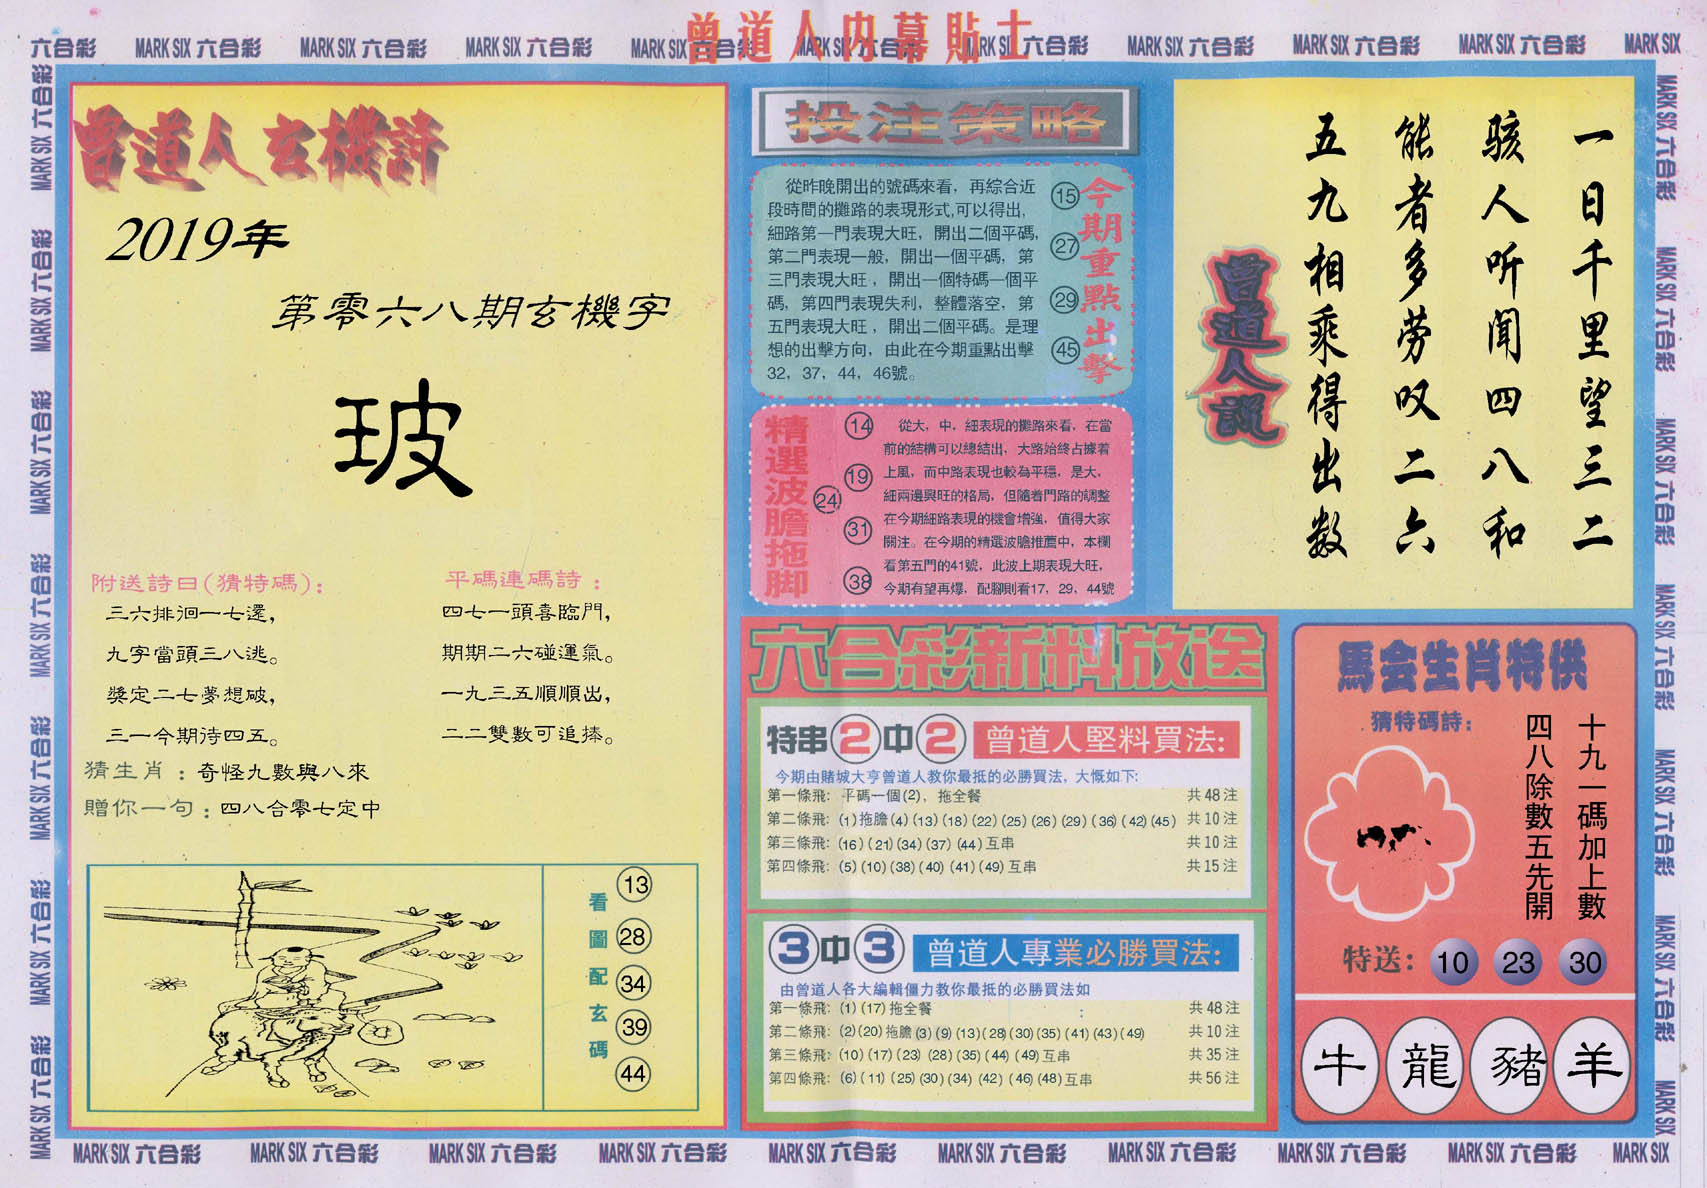 曾道人内幕貼士
六合彩 MARK SIX 六合彩 MARK SIX 六合彩 MARK SIX 六合彩 MARK SIX 六合彩 MARK SIX 六合彩 MARK SIX 六合彩 MARK SIX 六合彩 MARK SIX 六合彩 MARK SIX 六合彩 MARK SIX
曾道人玄機詩
2019年
第零六八期玄機字
玻
附送詩曰(猜特碼):
三六排徊一七還,
九字當頭三八逃。
獎定二七夢想破,
三一今期待四五。
平碼連碼詩:
四七一頭喜臨門,
期期二六碰運氣。
一九三五順順出,
二二雙數可追捧。
猜生肖:奇怪九數與八來
贈你一句:四八合零七定中
看圖配玄碼
13
28
34
39
44
投注策略
從昨晚開出的號碼來看,再綜合近
段時間的攤路的表現形式,可以得出,
細路第一門表現大旺,開出二個平碼,
第二門表現一般,開出一個平碼,第
三門表現大旺,開出一個特碼一個平
碼,第四門表現失利,整體落空,第
五門表現大旺,開出二個平碼。是理
想的出擊方向,由此在今期重點出擊
32,37,44,46號。
15
27
29
45
今期重點出擊
精選波膽拖脚
14
19
24
31
38
從大,中,細表現的攤路來看,在當
前的結構可以總結出,大路始終占據着
上風,而中路表現也較為平穩,是大,
細兩邊興旺的格局,但隨着門路的調整
在今期細路表現的機會增強,值得大家
關注。在今期的精選波膽推薦中,本欄
看第五門的41號,此波上期表現大旺,
今期有望再爆,配腳則看17,29,44號
六合彩新料放送
特串2中2 曾道人堅料買法:
今期由賭城大亨曾道人教你最抵的必勝買法,大慨如下:
第一條飛:平碼一個(2),拖全餐 共48注
第二條飛:(1)拖膽(4)(13)(18)(22)(25)(26)(29)(36)(42)(45) 共10注
第三條飛:(16)(21)(34)(37)(44)互串 共10注
第四條飛:(5)(10)(38)(40)(41)(49)互串 共15注
3中3 曾道人專業必勝買法:
由曾道人各大編輯僵力教你最抵的必勝買法如
第一條飛:(1)(17)拖全餐 共48注
第二條飛:(2)(20)拖膽(3)(9)(13)(28)(30)(35)(41)(43)(49) 共10注
第三條飛:(10)(17)(23)(28)(35)(44)(49)互串 共35注
第四條飛:(6)(11)(25)(30)(34)(42)(46)(48)互串 共56注
一日千里望三二
骇人听聞四八和
能者多劳叹二六
五九相乘得出数
曾道人説
馬会生肖特供
猜特碼詩:
十九一碼加上數
四八除數五先開
特送: 10 23 30
牛 龍 豬 羊
MARK SIX 六合彩 MARK SIX 六合彩 MARK SIX 六合彩 MARK SIX 六合彩 MARK SIX 六合彩 MARK SIX 六合彩 MARK SIX 六合彩 MARK SIX 六合彩 MARK SIX 六合彩 MARK SIX
MARK SIX 六合彩 MARK SIX 六合彩 MARK SIX 六合彩 MARK SIX 六合彩 MARK SIX 六合彩 MARK SIX 六合彩 MARK SIX 六合彩
MARK SIX 六合彩 MARK SIX 六合彩 MARK SIX 六合彩 MARK SIX 六合彩 MARK SIX 六合彩 MARK SIX 六合彩 MARK SIX